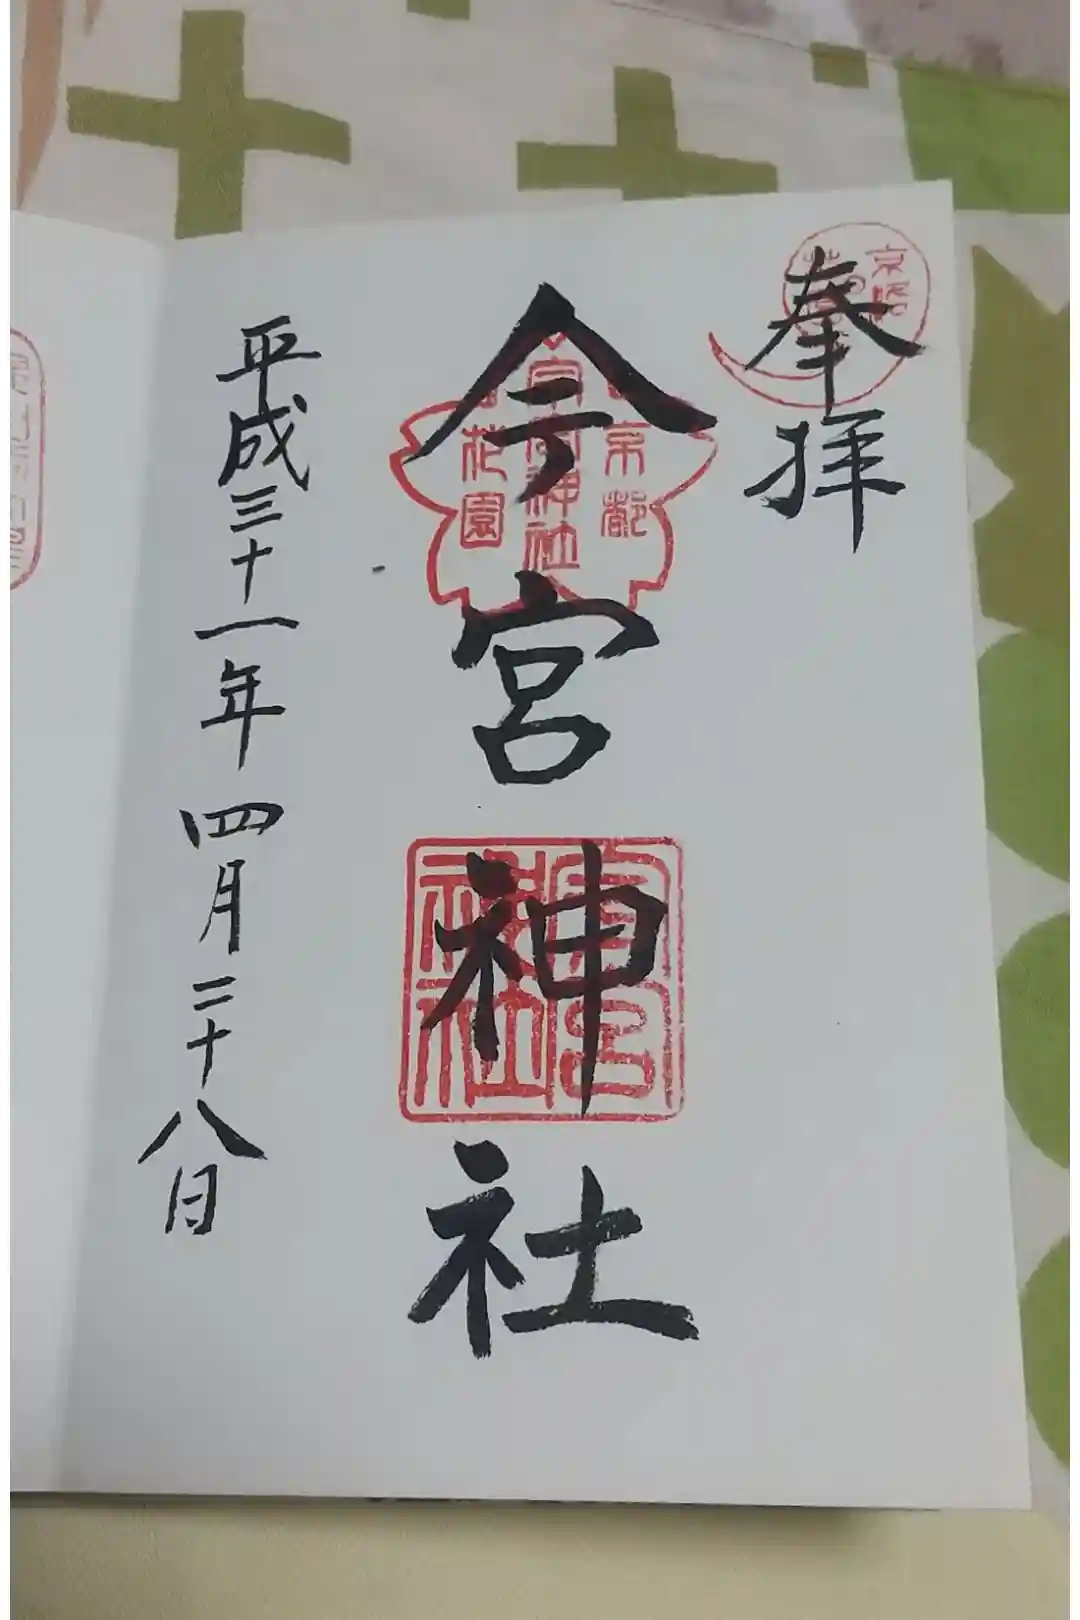 奉拝
今宮神社
京都
今宮神社
花園
今宮神社
平成三十一年四月二十八日